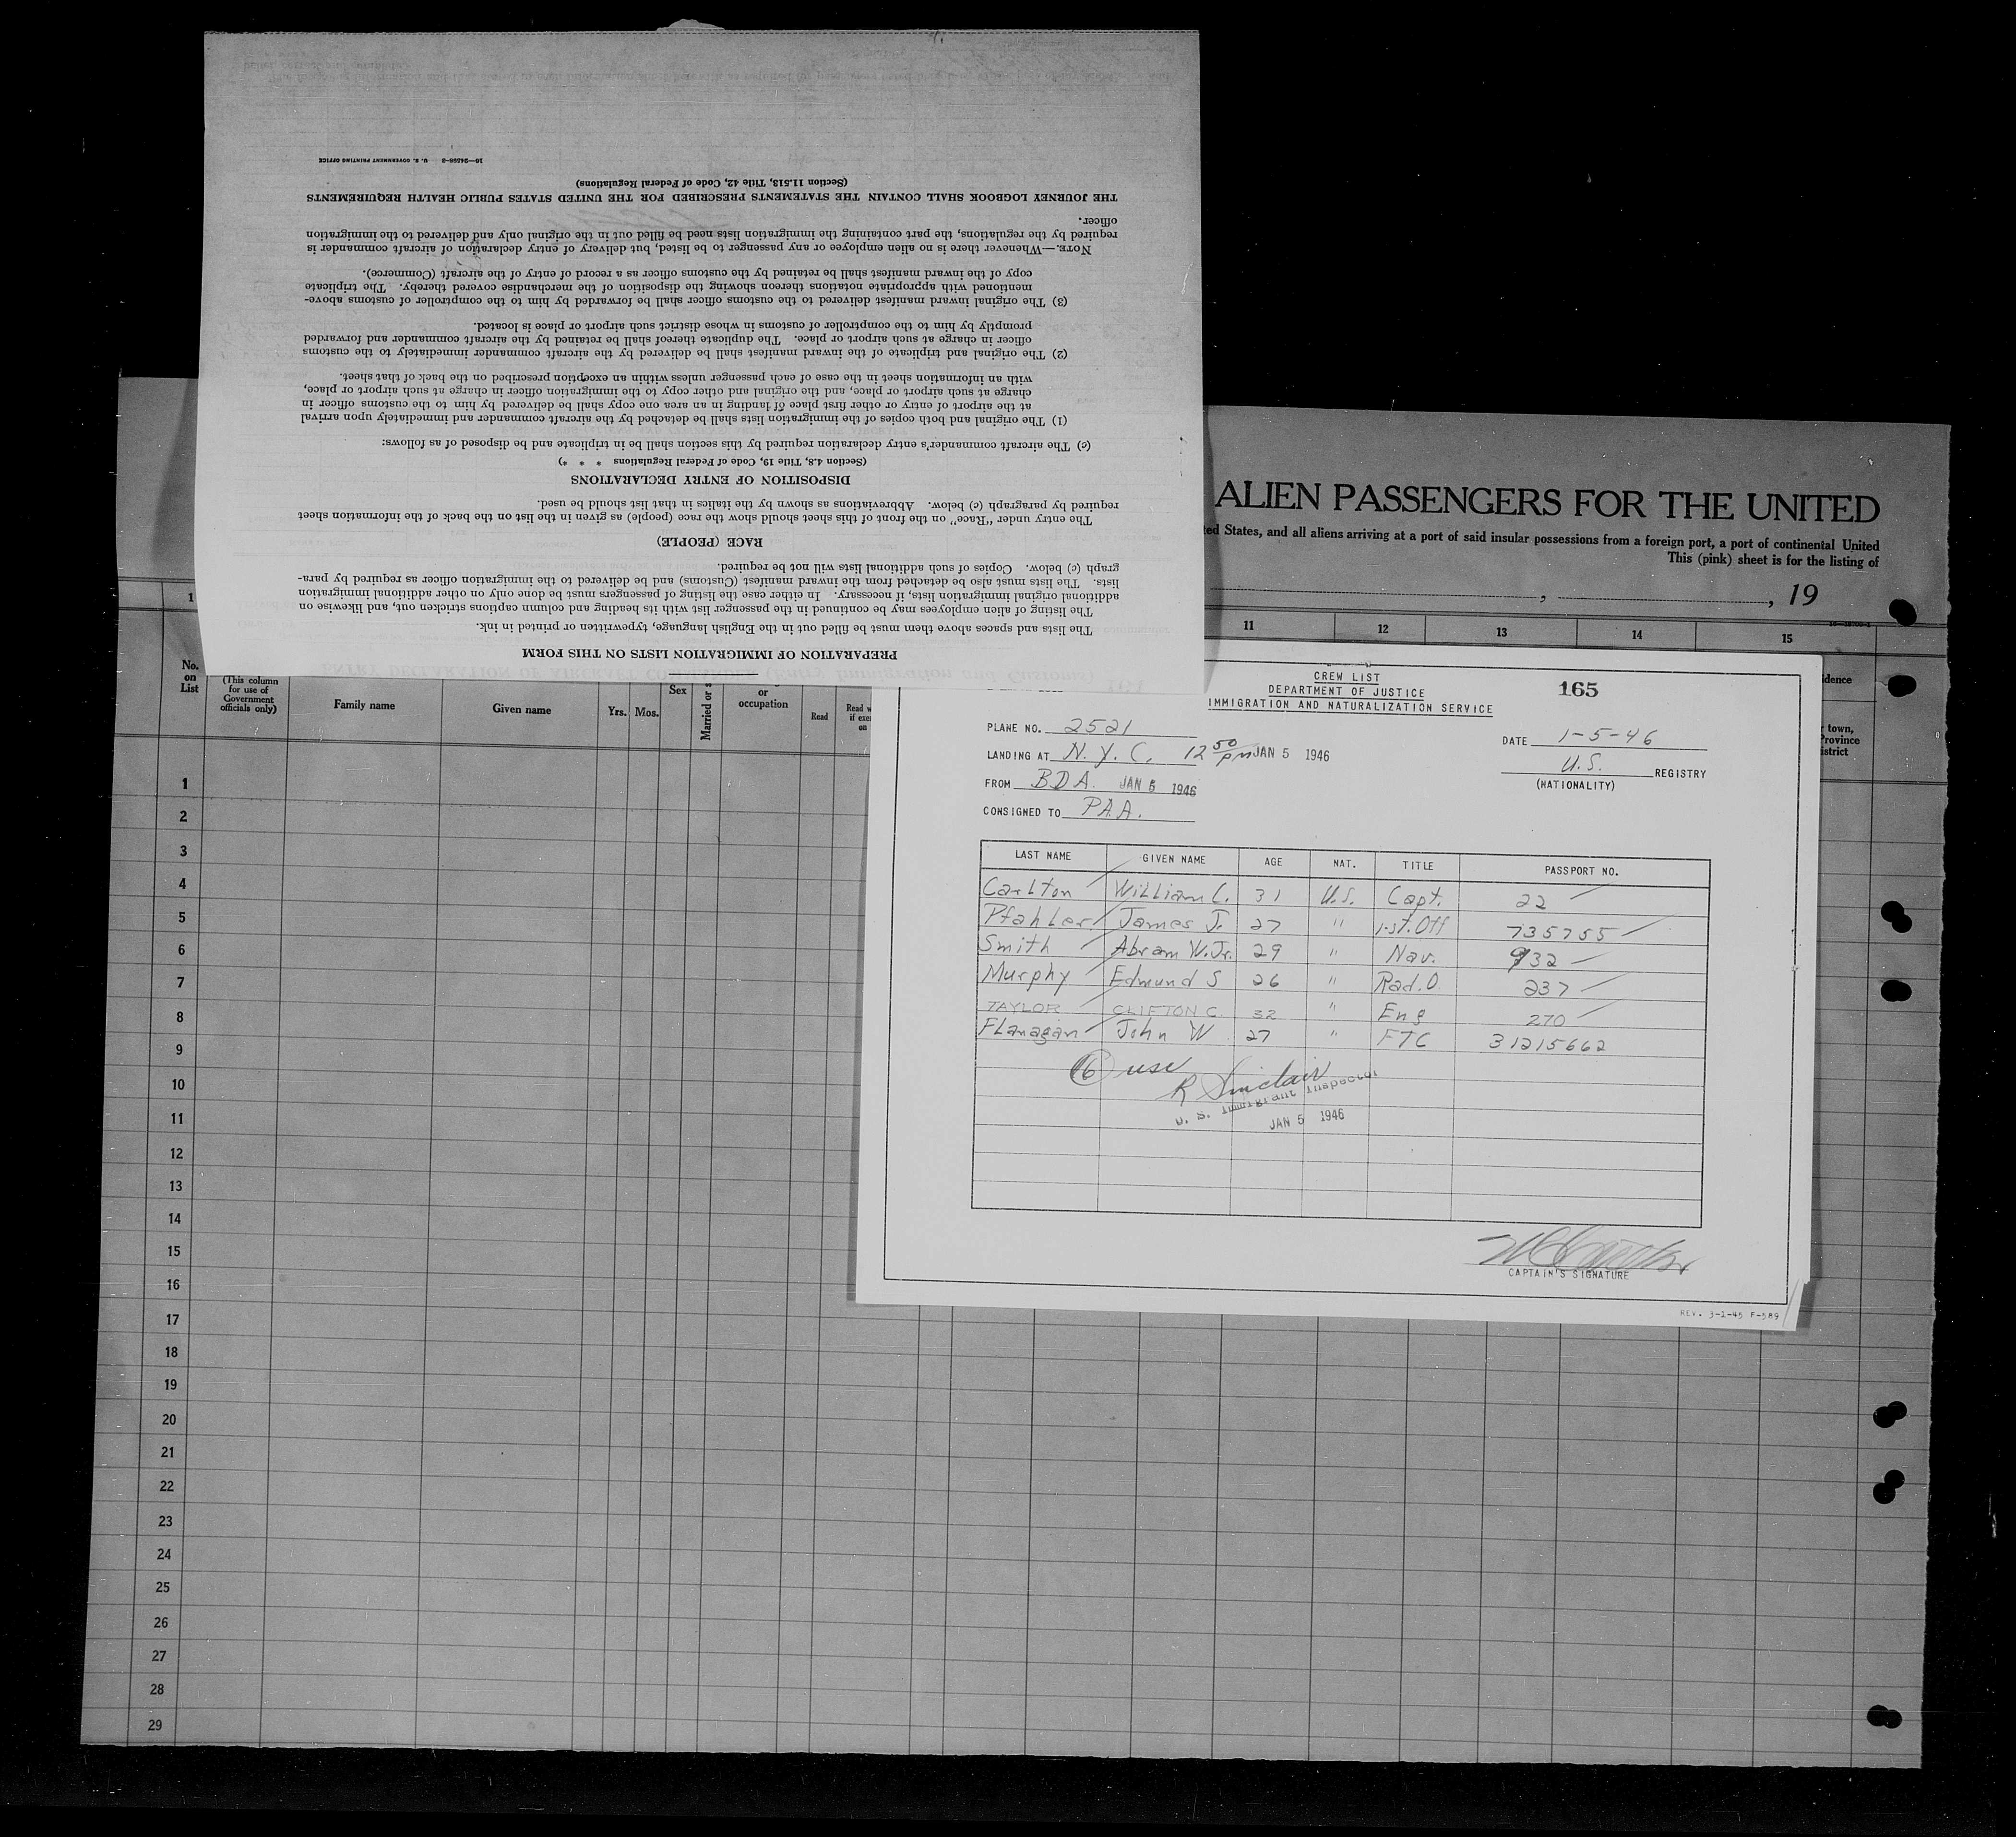 PREPARATION OF IMMIGRATION LISTS ON THIS FORM
The lists and spaces above them must be filled out in the English language, typewritten or printed in ink.
The listing of alien employees may be continued in the passenger list with its heading and column captions stricken out, and likewise on
additional original immigration lists, if necessary. In either case the listing of passengers must be done only on other additional immigration
lists. The lists must also be detached from the inward manifest (Customs) and be delivered to the immigration officer as required by para-
graph (c) below. Copies of such additional lists will not be required.
RACE (PEOPLE)
The entry under "Race" on the front of this sheet should show the race (people) as given in the list on the back of the information sheet
required by paragraph (c) below. Abbreviations as shown by the italics in that list should be used.
DISPOSITION OF ENTRY DECLARATIONS
(Section 4.8, Title 19, Code of Federal Regulations * * *)
(c) The aircraft commander's entry declaration required by this section shall be in triplicate and be disposed of as follows:
(1) The original and both copies of the immigration lists shall be detached by the aircraft commander and immediately upon arrival
at the airport of entry or other first place of landing in an area one copy shall be delivered by him to the customs officer in
charge at such airport or place, and the original and other copy to the immigration officer in charge at such airport or place,
with an information sheet in the case of each passenger unless within an exception prescribed on the back of that sheet.
(2) The original and triplicate of the inward manifest shall be delivered by the aircraft commander immediately to the customs
officer in charge at such airport or place. The duplicate thereof shall be retained by the aircraft commander and forwarded
promptly by him to the comptroller of customs in whose district such airport or place is located.
(3) The original inward manifest delivered to the customs officer shall be forwarded by him to the comptroller of customs above-
mentioned with appropriate notations thereon showing the disposition of the merchandise covered thereby. The triplicate
copy of the inward manifest shall be retained by the customs officer as a record of entry of the aircraft (Commerce).
NOTE.—Whenever there is no alien employee or any passenger to be listed, but delivery of entry declaration of aircraft commander is
required by the regulations, the part containing the immigration lists need be filled out in the original only and delivered to the immigration
officer.
THE JOURNEY LOGBOOK SHALL CONTAIN THE STATEMENTS PRESCRIBED FOR THE UNITED STATES PUBLIC HEALTH REQUIREMENTS
(Section 11.513, Title 42, Code of Federal Regulations)
16—24598-3 U. S. GOVERNMENT PRINTING OFFICE
ALIEN PASSENGERS FOR THE UNITED
ted States, and all aliens arriving at a port of said insular possessions from a foreign port, a port of continental United
This (pink) sheet is for the listing of
, , 19
1 11 12 13 14 15
No. on List
(This column for use of Government officials only)
Family name
Given name
Yrs. Mos.
Sex
Married or s
or occupation
Read
Read w
if exe
on
idence
town,
Province
istrict
1
2
3
4
5
6
7
8
9
10
11
12
13
14
15
16
17
18
19
20
21
22
23
24
25
26
27
28
29
CREW LIST
DEPARTMENT OF JUSTICE
IMMIGRATION AND NATURALIZATION SERVICE
165
PLANE NO. 2521
LANDING AT N.Y.C. 12 50 pm JAN 5 1946
FROM BDA. JAN 5 1946
CONSIGNED TO PAA.
DATE 1-5-46
U.S. REGISTRY
(NATIONALITY)
LAST NAME GIVEN NAME AGE NAT. TITLE PASSPORT NO.
Carlton William C. 31 U.S. Capt. 22
Pfahler James J. 27 " 1st. Off 735755
Smith Abram W. Jr. 29 " Nav. 932
Murphy Edmund S 26 " Rad. O 237
TAYLOR CLIFTON C. 32 " Eng 270
Flanagan John W 27 " FTC 31215662
6 usc
R Sinclair
U. S. Immigrant Inspector
JAN 5 1946
CAPTAIN'S SIGNATURE
REV. 3-1-45 F-589